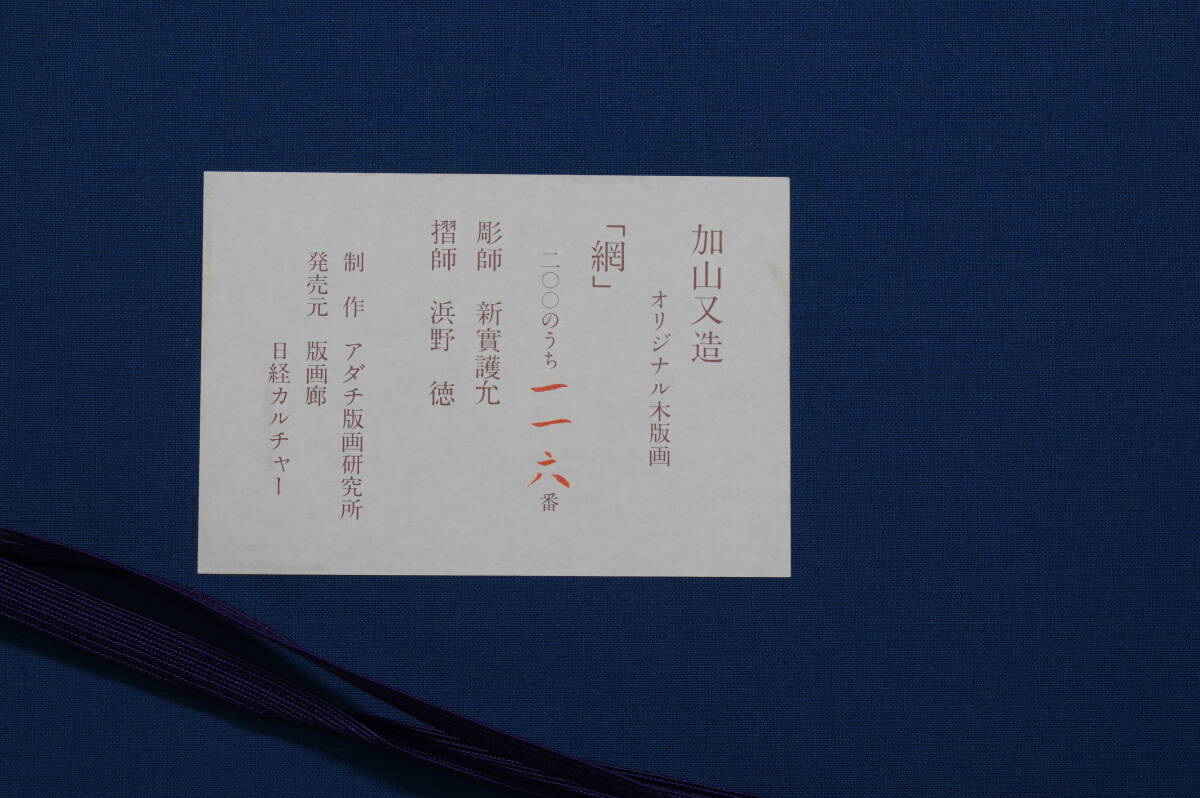 加山又造
オリジナル木版画
「網」
二〇〇のうち一一六番
彫師　新實護允
摺師　浜野　徳
制　作　アダチ版画研究所
発売元　版画廊
日経カルチャー